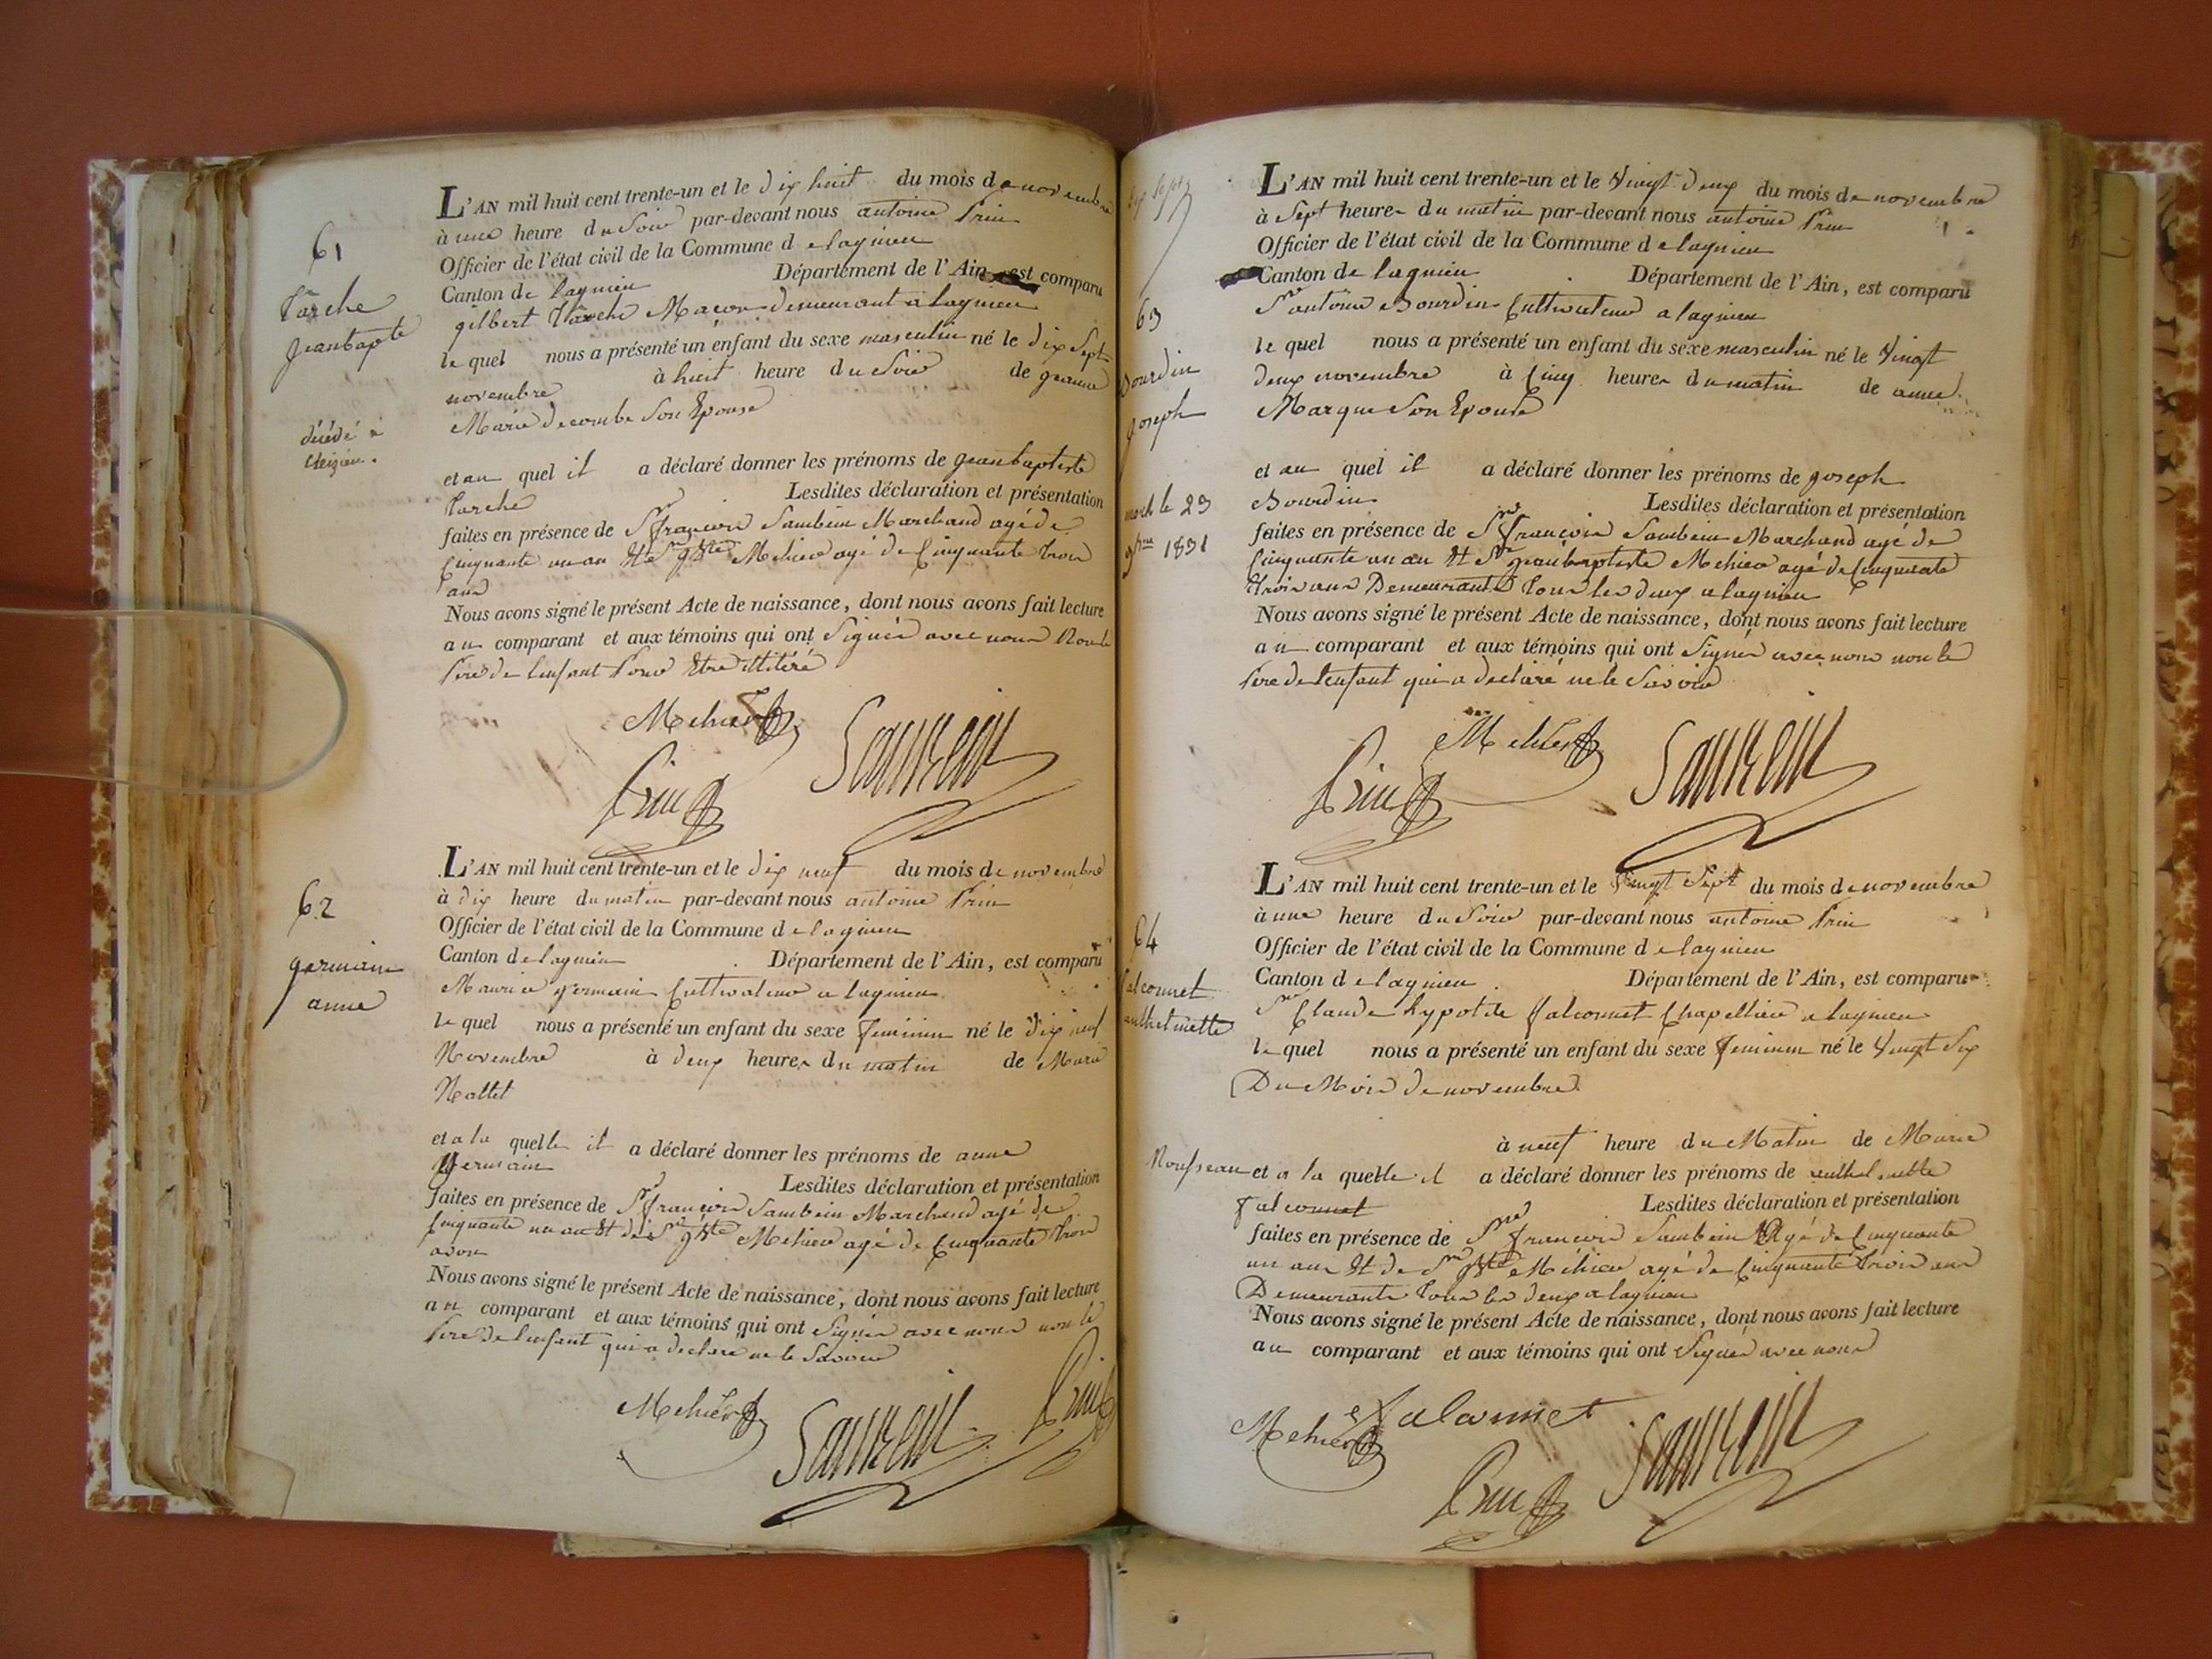 61
Tarche
Jeanbapte
décédé à
L'AN mil huit cent trente-un et le dix huit du mois de novembre
à une heure du Soir par-devant nous antoine Prin
Officier de l'état civil de la Commune de lagnieu
Canton de lagnieu Département de l'Ain est comparu
gilbert Tarche Maçon demeurant a lagnieu
le quel nous a présenté un enfant du sexe masculin né le dix Sept
novembre à huit heure du Soir de jeanne
Marie decombe Son Epouse
et au quel il a déclaré donner les prénoms de jeanbaptiste
Tarche Lesdites déclaration et présentation
faites en présence de Sr françois Sambein Marchand agé de
Cinquante un an Et de Sr jBte Mehier agé de Cinquante trois
ans
Nous avons signé le présent Acte de naissance, dont nous avons fait lecture
au comparant et aux témoins qui ont Signés avec nous Non le
Pere de lenfant Pour Etre illitéré
Mehier
Prin
62
germain
anne
L'AN mil huit cent trente-un et le dix neuf du mois de novembre
à dix heure du matin par-devant nous antoine Prin
Officier de l'état civil de la Commune de lagnieu
Canton de lagnieu Département de l'Ain, est comparu
Maurice germain Cultivateur a lagnieu
le quel nous a présenté un enfant du sexe feminin né le dix neuf
Novembre à deux heures du matin de Marie
Nallet
et a la quelle il a déclaré donner les prénoms de anne
germain Lesdites déclaration et présentation
faites en présence de Sr françois Sambein Marchand agé de
Cinquante un an Et de Sr jBte Mehier agé de Cinquante trois
Nous avons signé le présent Acte de naissance, dont nous avons fait lecture
au comparant et aux témoins qui ont Signés avec nous non le
Pere de lenfant qui a declare ne le Savoir
Mehier
Prin
63
Bourdin
joseph
mort le 23
9bre 1831
L'AN mil huit cent trente-un et le Vingt deux du mois de novembre
à Sept heures du matin par-devant nous antoine Prin
Officier de l'état civil de la Commune de lagnieu
Canton de lagnieu Département de l'Ain, est comparu
Sr antoine Bourdin Cultivateur a lagnieu
le quel nous a présenté un enfant du sexe masculin né le Vingt
deux novembre à Cinq heures du matin de anne
Marque Son Epouse
et au quel il a déclaré donner les prénoms de joseph
Bourdin Lesdites déclaration et présentation
faites en présence de Sr françois Sambein Marchand agé de
Cinquante un an Et Sr jeanbaptiste Mehier agé de Cinquante
trois ans Demeurant Tous les deux a lagnieu
Nous avons signé le présent Acte de naissance, dont nous avons fait lecture
au comparant et aux témoins qui ont Signés avec nous non le
Pere de lenfant qui a déclaré ne le Savoir
Mehier
Prin
64
falconnet
L'AN mil huit cent trente-un et le Vingt Sept du mois de novembre
à une heure du Soir par-devant nous antoine Prin
Officier de l'état civil de la Commune de lagnieu
Canton de lagnieu Département de l'Ain, est comparu
Sr Claude hypolite falconnet Chapellier a lagnieu
le quel nous a présenté un enfant du sexe feminin né le Vingt Six
Du Mois de novembre
à neuf heure du Matin de Marie
Rousseau et a la quelle il a déclaré donner les prénoms de
falconnet Lesdites déclaration et présentation
faites en présence de Sr françois Sambein agé de Cinquante
un an Et de Sr jBte Méhier agé de Cinquante trois ans
Demeurants Tous les deux a lagnieu
Nous avons signé le présent Acte de naissance, dont nous avons fait lecture
au comparant et aux témoins qui ont Signés avec nous
Mehier
Prin